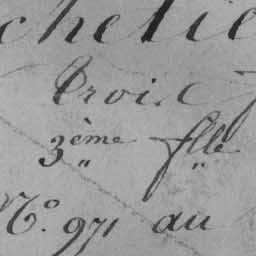 chetie
Croix
3ème flle
" "
No. 971 au